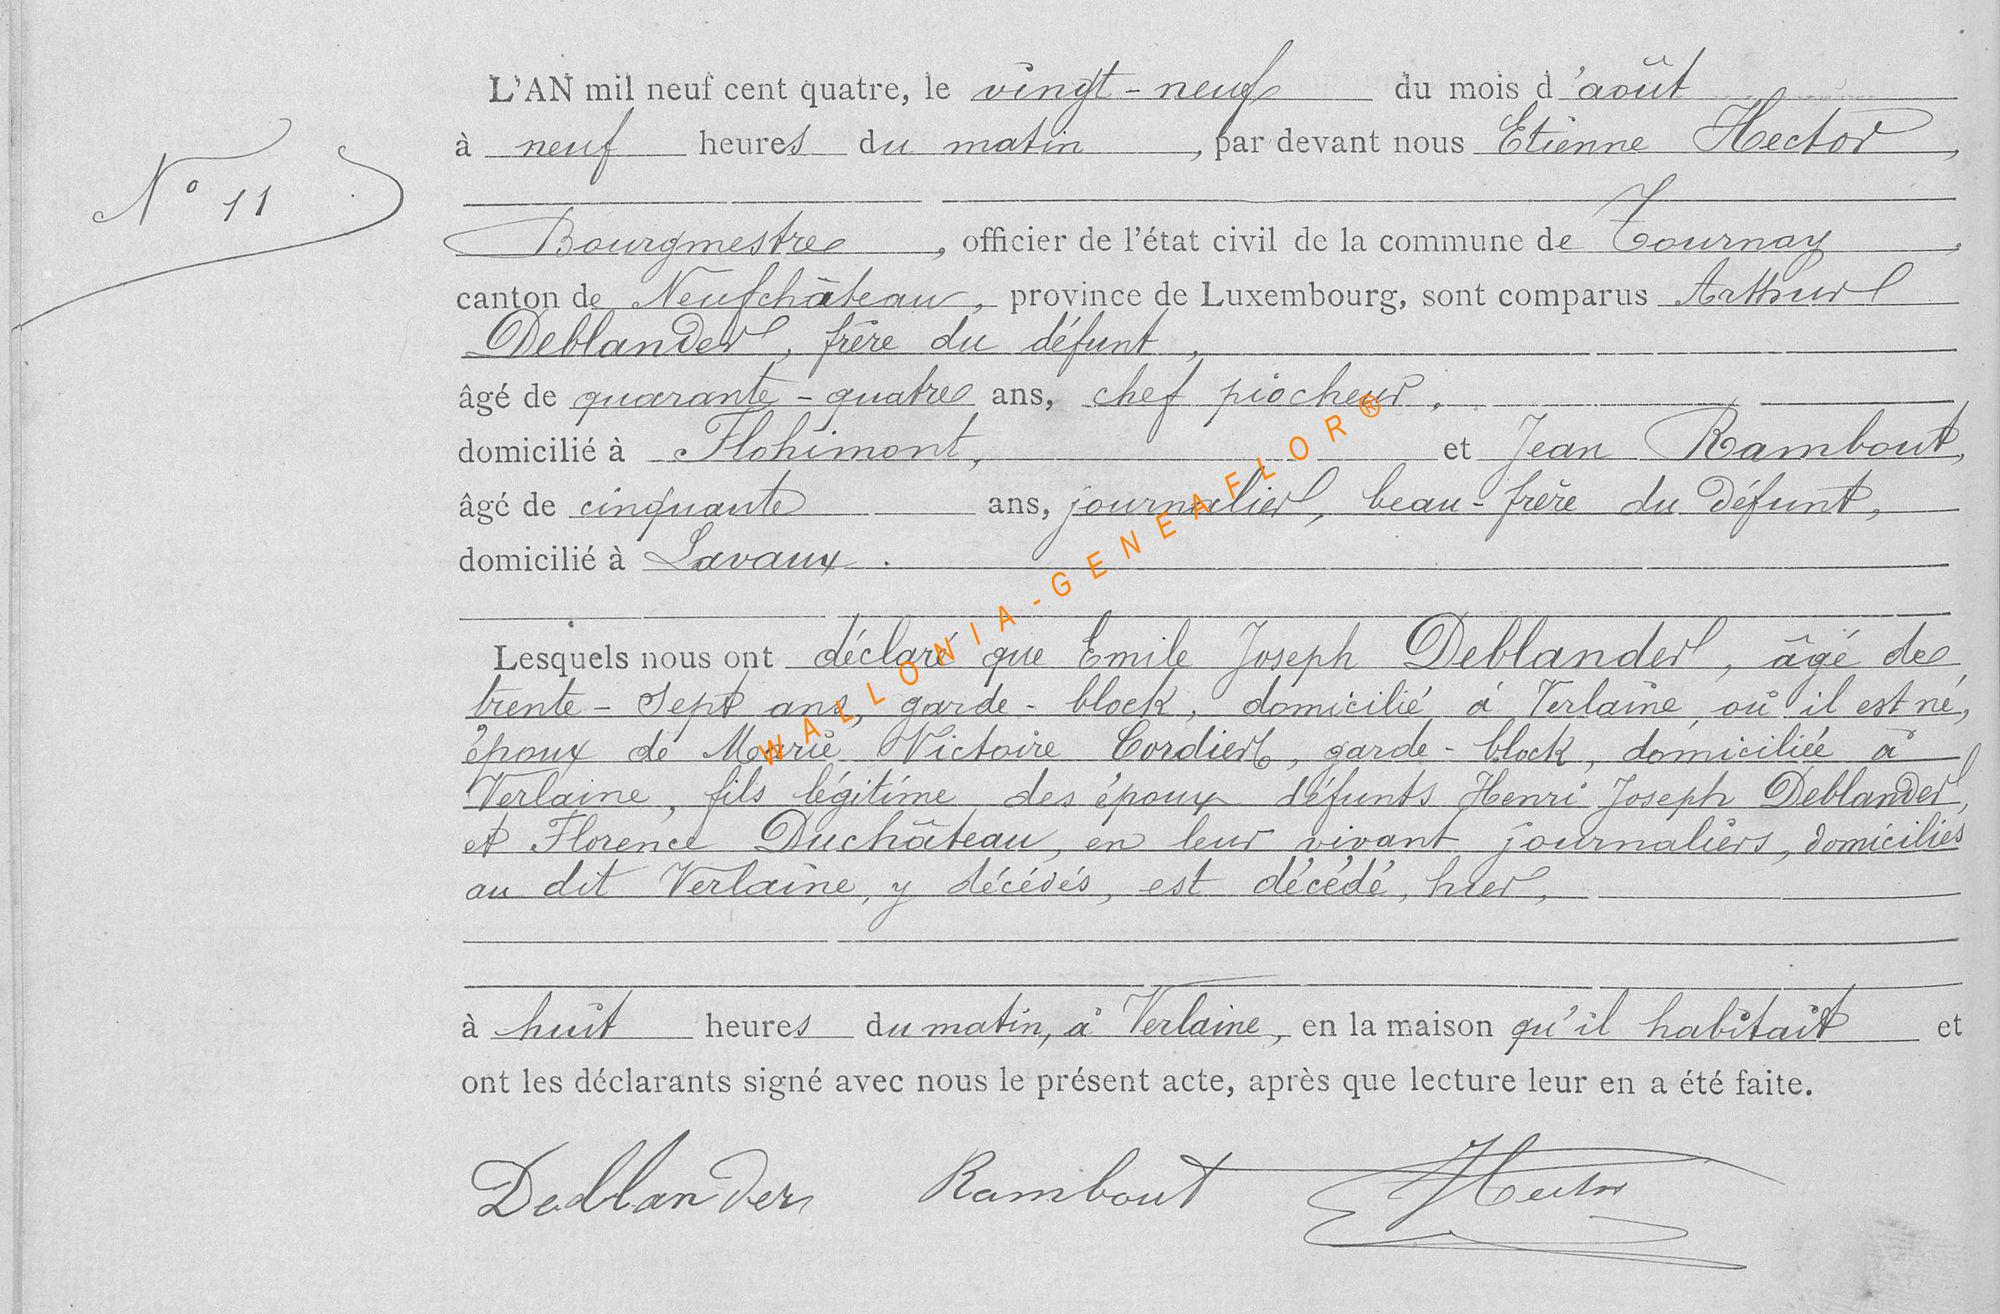 L'AN mil neuf cent quatre, le vingt-neuf du mois d'août
à neuf heures du matin, par devant nous Etienne Hector,
N° 11
Bourgmestre, officier de l'état civil de la commune de Tournay,
canton de Neufchâteau, province de Luxembourg, sont comparus Arthur
Deblander, frère du défunt,
âgé de quarante-quatre ans, chef piocheur,
domicilié à Flohimont, et Jean Rambout,
âgé de cinquante ans, journalier, beau-frère du défunt,
domicilié à Lavaux.
Lesquels nous ont déclaré que Emile Joseph Deblander, âgé de
trente-sept ans, garde-block, domicilié à Verlaine où il est né,
époux de Marie Victoire Cordier, garde-block, domiciliée à
Verlaine, fils légitime des époux défunts Henri Joseph Deblander,
et Florence Duchâteau, en leur vivant journaliers, domiciliés
au dit Verlaine, y décédés, est décédé, hier,
à huit heures du matin, à Verlaine, en la maison qu'il habitait et
ont les déclarants signé avec nous le présent acte, après que lecture leur en a été faite.
Deblander Rambout Hector
WALLONIA-GENEAFLOR®